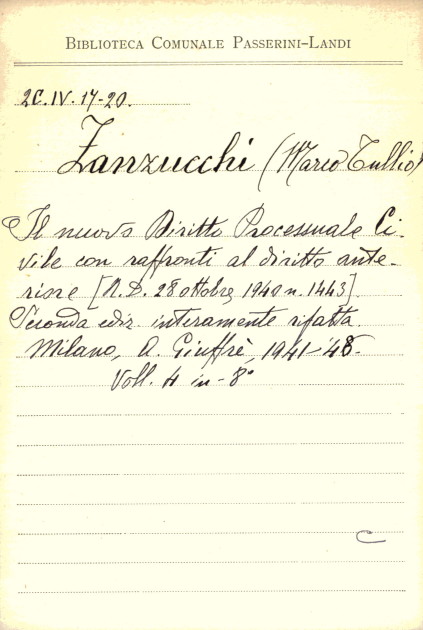 BIBLIOTECA COMUNALE PASSERINI-LANDI
2C.IV.17-20.
Zanzucchi (Marco Tullio)
Il nuovo Diritto Processuale Ci-
vile con raffronti al diritto ante-
riore [R.D. 28 ottobre 1940 n. 1443].
Seconda ediz. interamente rifatta.
Milano, A. Giuffrè, 1941-'48.
Voll. 4 in-8°
C